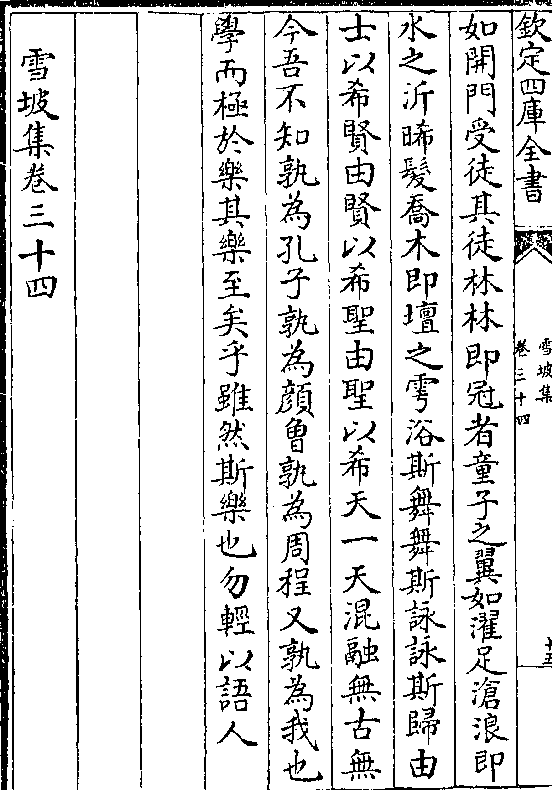 欽定四庫全書
雪坡集
卷三十四
十五
如開門受徒其徒林林即冠者童子之翼如濯足滄浪即
水之沂晞髮喬木即壇之雩浴斯舞舞斯詠詠斯歸由
士以希賢由賢以希聖由聖以希天一天混融無古無
今吾不知孰為孔子孰為顔曾孰為周程又孰為我也
學而極於樂其樂至矣乎雖然斯樂也勿輕以語人
雪坡集卷三十四